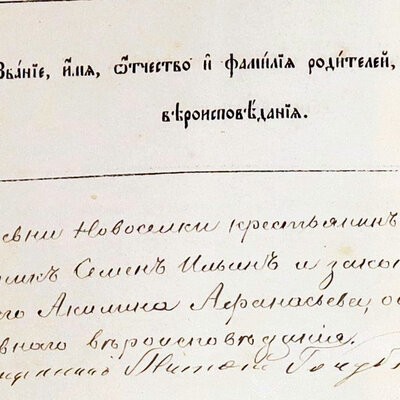 Званїе, имя, ѿтчество и фамилїя родителей,
вѣроисповѣданїя.
евни Новоселки крестьянинъ
никъ Семенъ Ильинъ и закон
его Акилина Афанасьева, об
вного вѣроисповѣданія.